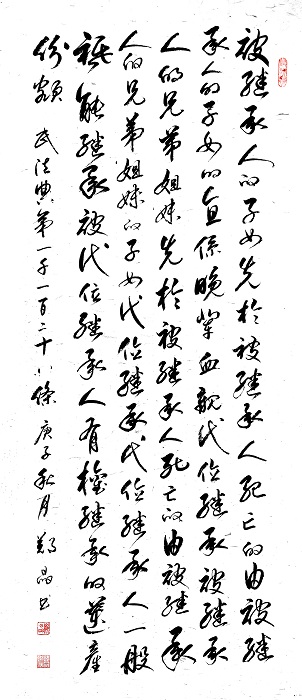 被继承人的子女先於被继承人死亡的由被继
承人的子女的直係晚辈血親代位继承被继承
人的兄弟姐妹先於被继承人死亡的由被继承
人的兄弟姐妹的子女代位继承代位继承人一般
祗能继承被代位继承人有權继承的遗產
份额 民法典第一千一百二十八條 庚子秋月 郑晶书